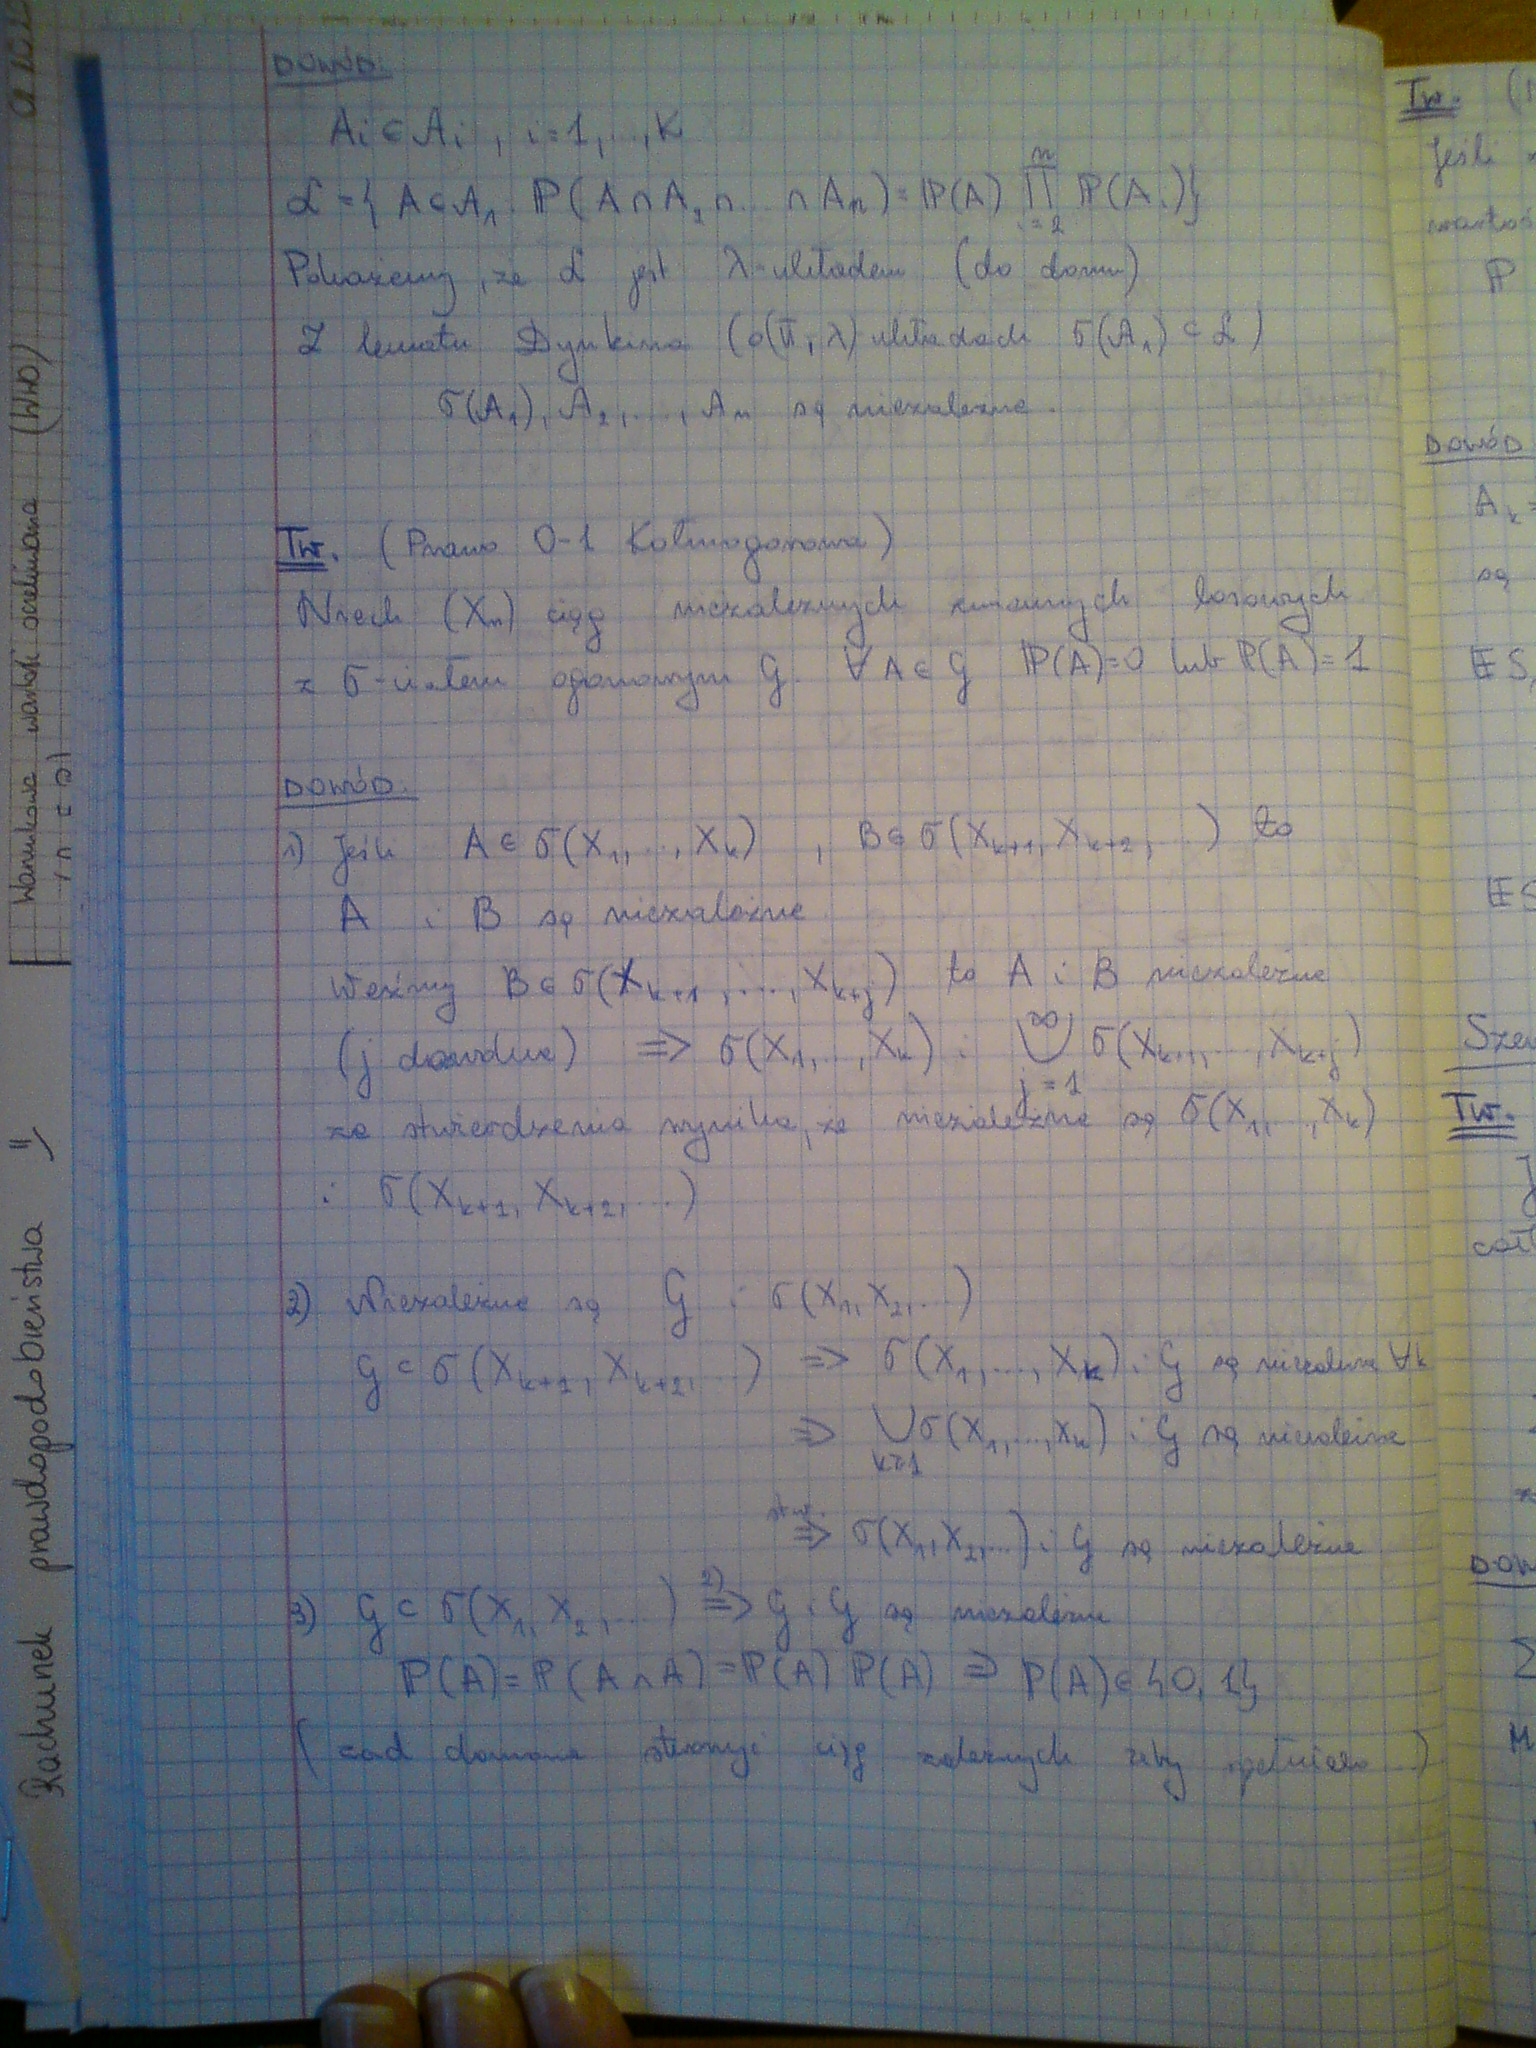 DOWÓD:
Ai ∈ Ai, i=1,...,k
L = { A ∈ A₁: ℙ(A∩A₂∩...∩An) = ℙ(A) ∏ⁿᵢ₌₂ ℙ(Ai)}
Pokażemy, że L jest λ-układem (do domu)
Z lematu Dynkina (o(π, λ) układach σ(A₁) ⊂ L)
σ(A₁), A₂, ..., An są niezależne.
Tw. (Prawo 0-1 Kołmogorowa)
Niech (Xn) ciąg niezależnych zmiennych losowych
z σ-ciałem ogonowym G. ∀ A∈G ℙ(A)=0 lub ℙ(A)=1
DOWÓD:
1) Jeśli A ∈ σ(X₁, ..., Xk), B ∈ σ(Xk+1, Xk+2, ...) to
A i B są niezależne.
Weźmy B ∈ σ(Xk+1, ..., Xk+j) to A i B niezależne
(j dowolne) ⇒ σ(X₁, ..., Xk) i ⋃^∞_{j=1} σ(Xk+1, ..., Xk+j)
ze stwierdzenia wynika, że niezależne są σ(X₁, ..., Xk)
i σ(Xk+1, Xk+2, ...)
2) Niezależne są G i σ(X₁, X₂, ...)
G ⊂ σ(Xk+1, Xk+2, ...) ⇒ σ(X₁, ..., Xk) i G są niezależne ∀k
⇒ ⋃_{k≥1} σ(X₁, ..., Xk) i G są niezależne
stw. ⇒ σ(X₁, X₂, ...) i G są niezależne
3) G ⊂ σ(X₁, X₂, ...) 2) ⇒ G i G są niezależne
ℙ(A) = ℙ(A∩A) = ℙ(A) ℙ(A) ⇒ ℙ(A) ∈ {0, 1}
( zad domowe ciąg zależnych żeby )
Rachunek prawdopodobieństwa
Warunkowa wartość oczekiwana (WWO)
Tw.
Jeśli
ℙ
DOWÓD
Ak =
są
𝔼S
𝔼S
Tw.
∑
M